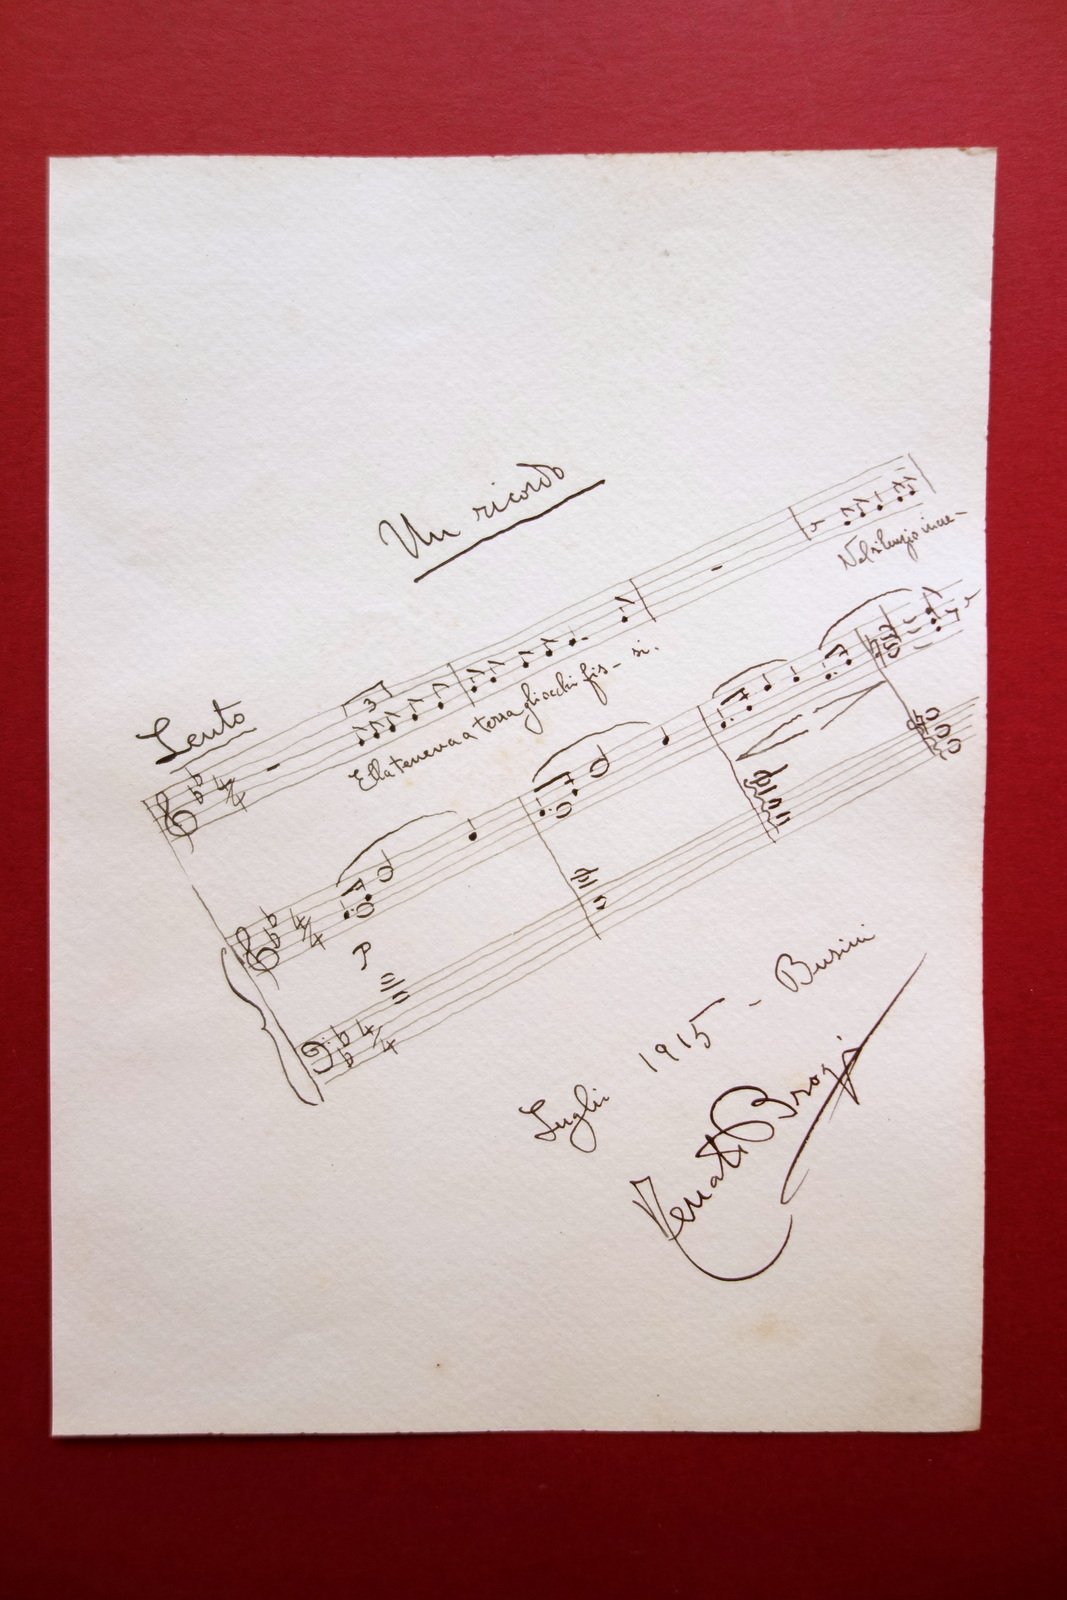 Un ricordo
Lento
3
Ella teneva a terra gli occhi fis - si.
Nel silenzio
4/4
4/4
P
4/4
Luglio 1915 - Busini
Renato Brogi